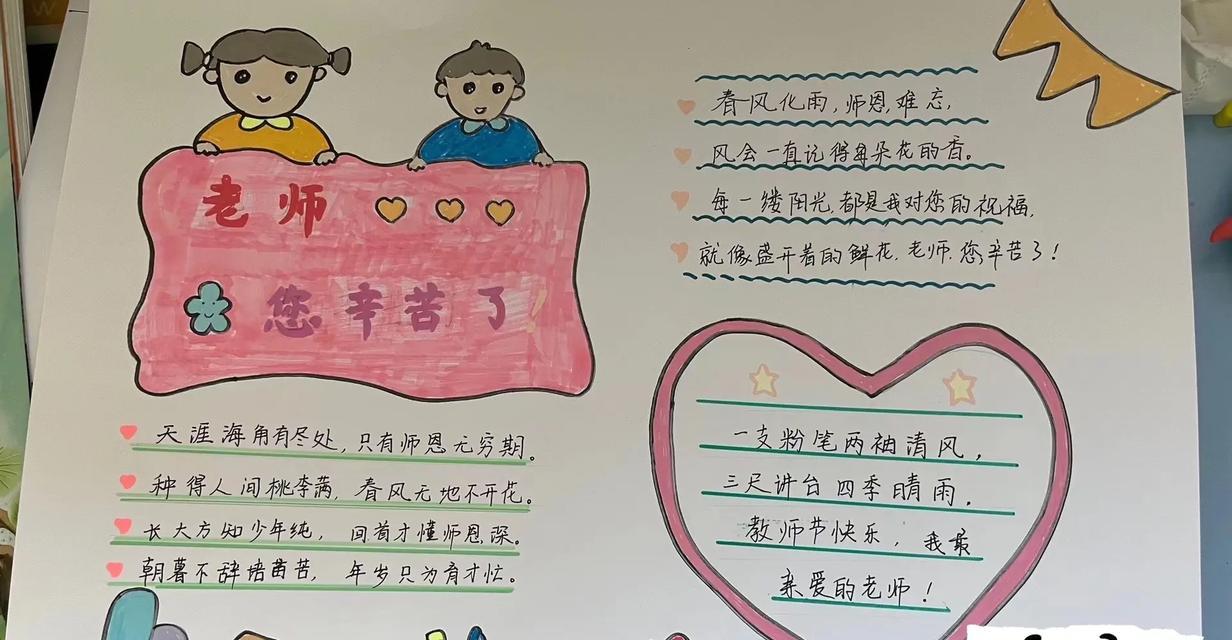 老师
您辛苦了!
天涯海角有尽处,只有师恩无穷期。
种得人间桃李满,春风无地不开花。
长大方知少年纯,回首才懂师恩深。
朝暮不辞培苗苦,年岁只为育才忙。
春风化雨,师恩难忘,
风会一直记得每朵花的香。
每一缕阳光,都是我对您的祝福,
就像盛开着的鲜花.老师.您辛苦了!
一支粉笔两袖清风,
三尺讲台四季晴雨.
教师节快乐,我最
亲爱的老师!